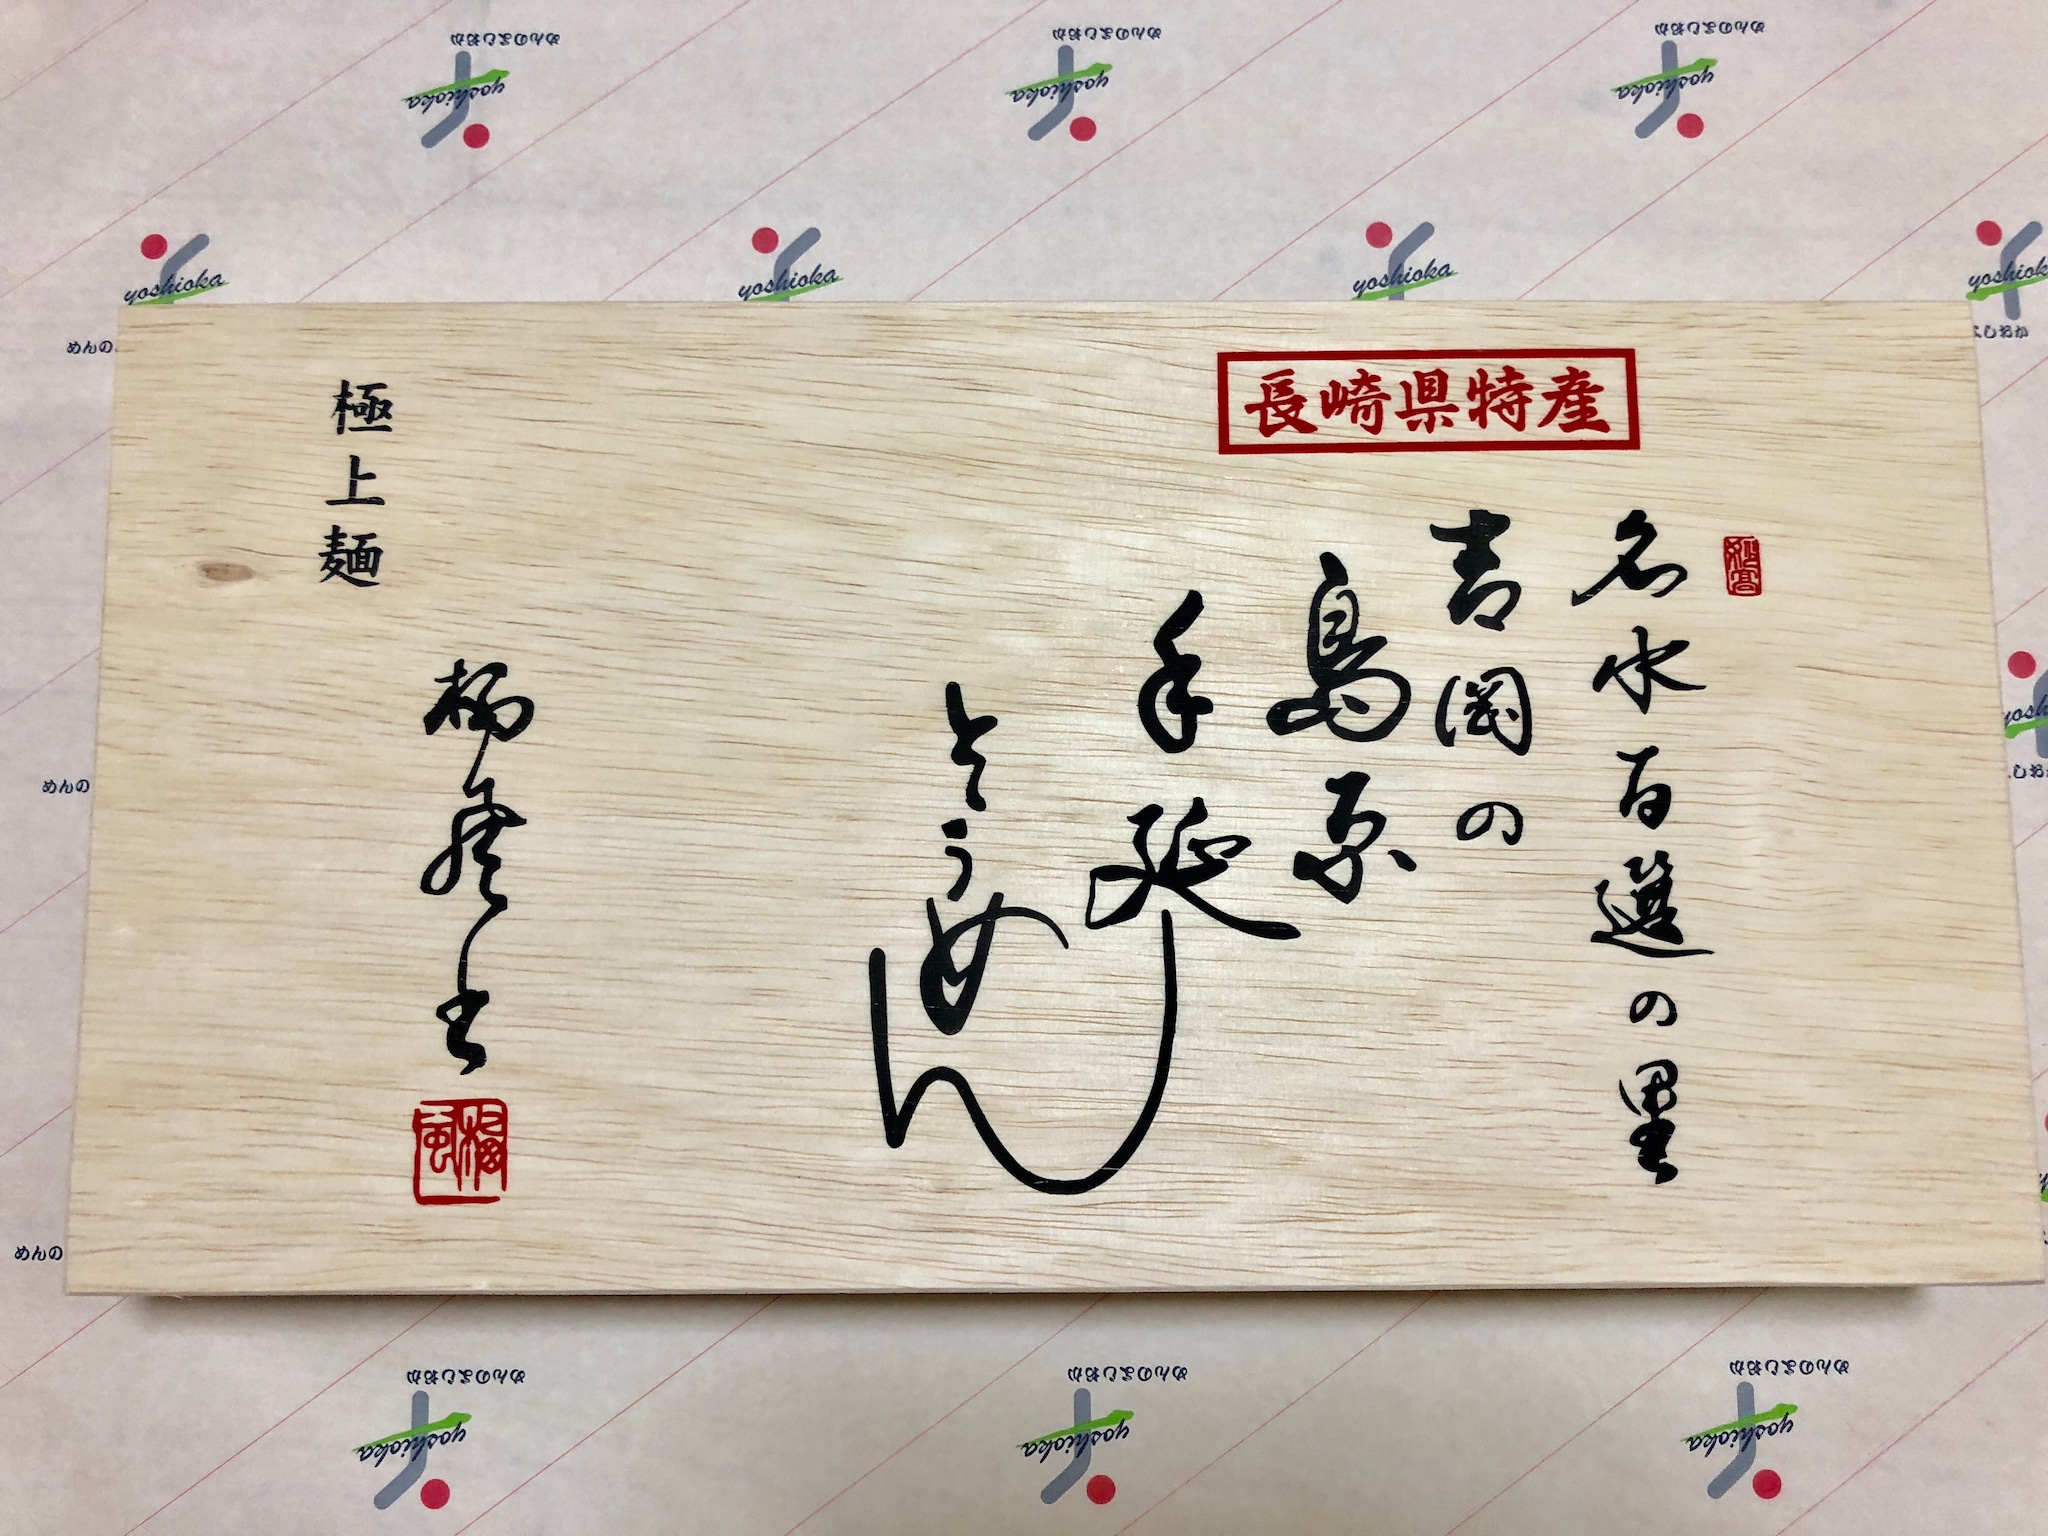 めんのよしおか
yoshioka
めんのよしおか
yoshioka
めんのよしおか
yoshioka
yoshioka
yoshioka
yoshioka
長崎県特産
名水百選の里
吉岡の
島原
手延
そうめん
極上麺
めんの
めんの
めんの
めんのよしおか
yoshioka
めんのよしおか
yoshioka
めんのよしおか
yoshioka